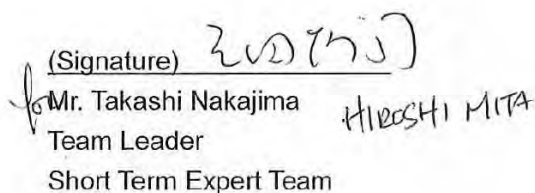 (Signature)
for Mr. Takashi Nakajima
HIROSHI MITA
Team Leader
Short Term Expert Team